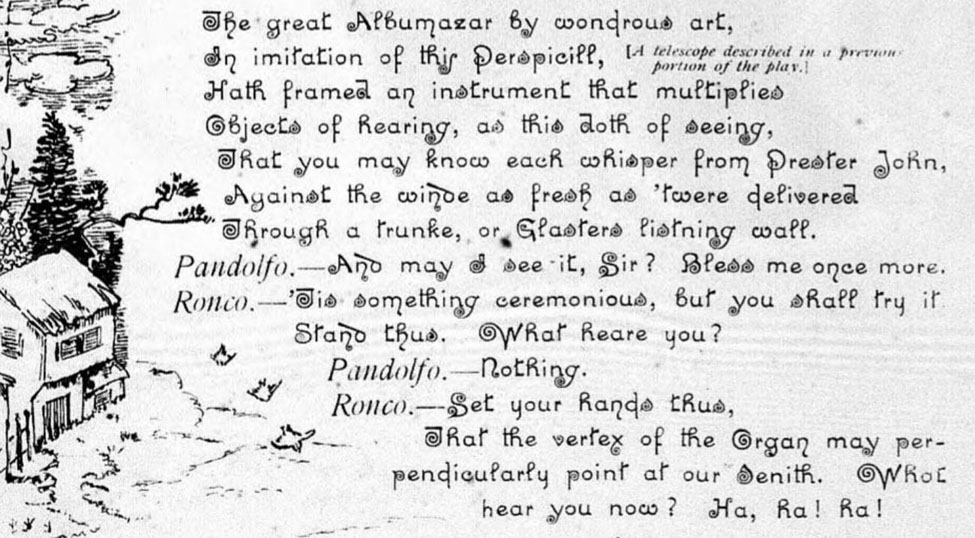 The great Albumazar by wondrous art,
In imitation of this Perspicill, [A telescope described in a previous
portion of the play.]
Hath framed an instrument that multiplies
Objects of hearing, as this doth of seeing,
That you may know each whisper from Prester John,
Against the winde as fresh as 'twere delivered
Through a trunke, or Glasters listning wall.
Pandolfo.—And may I see it, Sir? Bless me once more.
Ronco.—'Tis something ceremonious, but you shall try it
Stand thus. What heare you?
Pandolfo.—Nothing.
Ronco.—Set your hands thus,
That the vertex of the Organ may per-
pendicularly point at our Senith. What
hear you now? Ha, ha! ha!